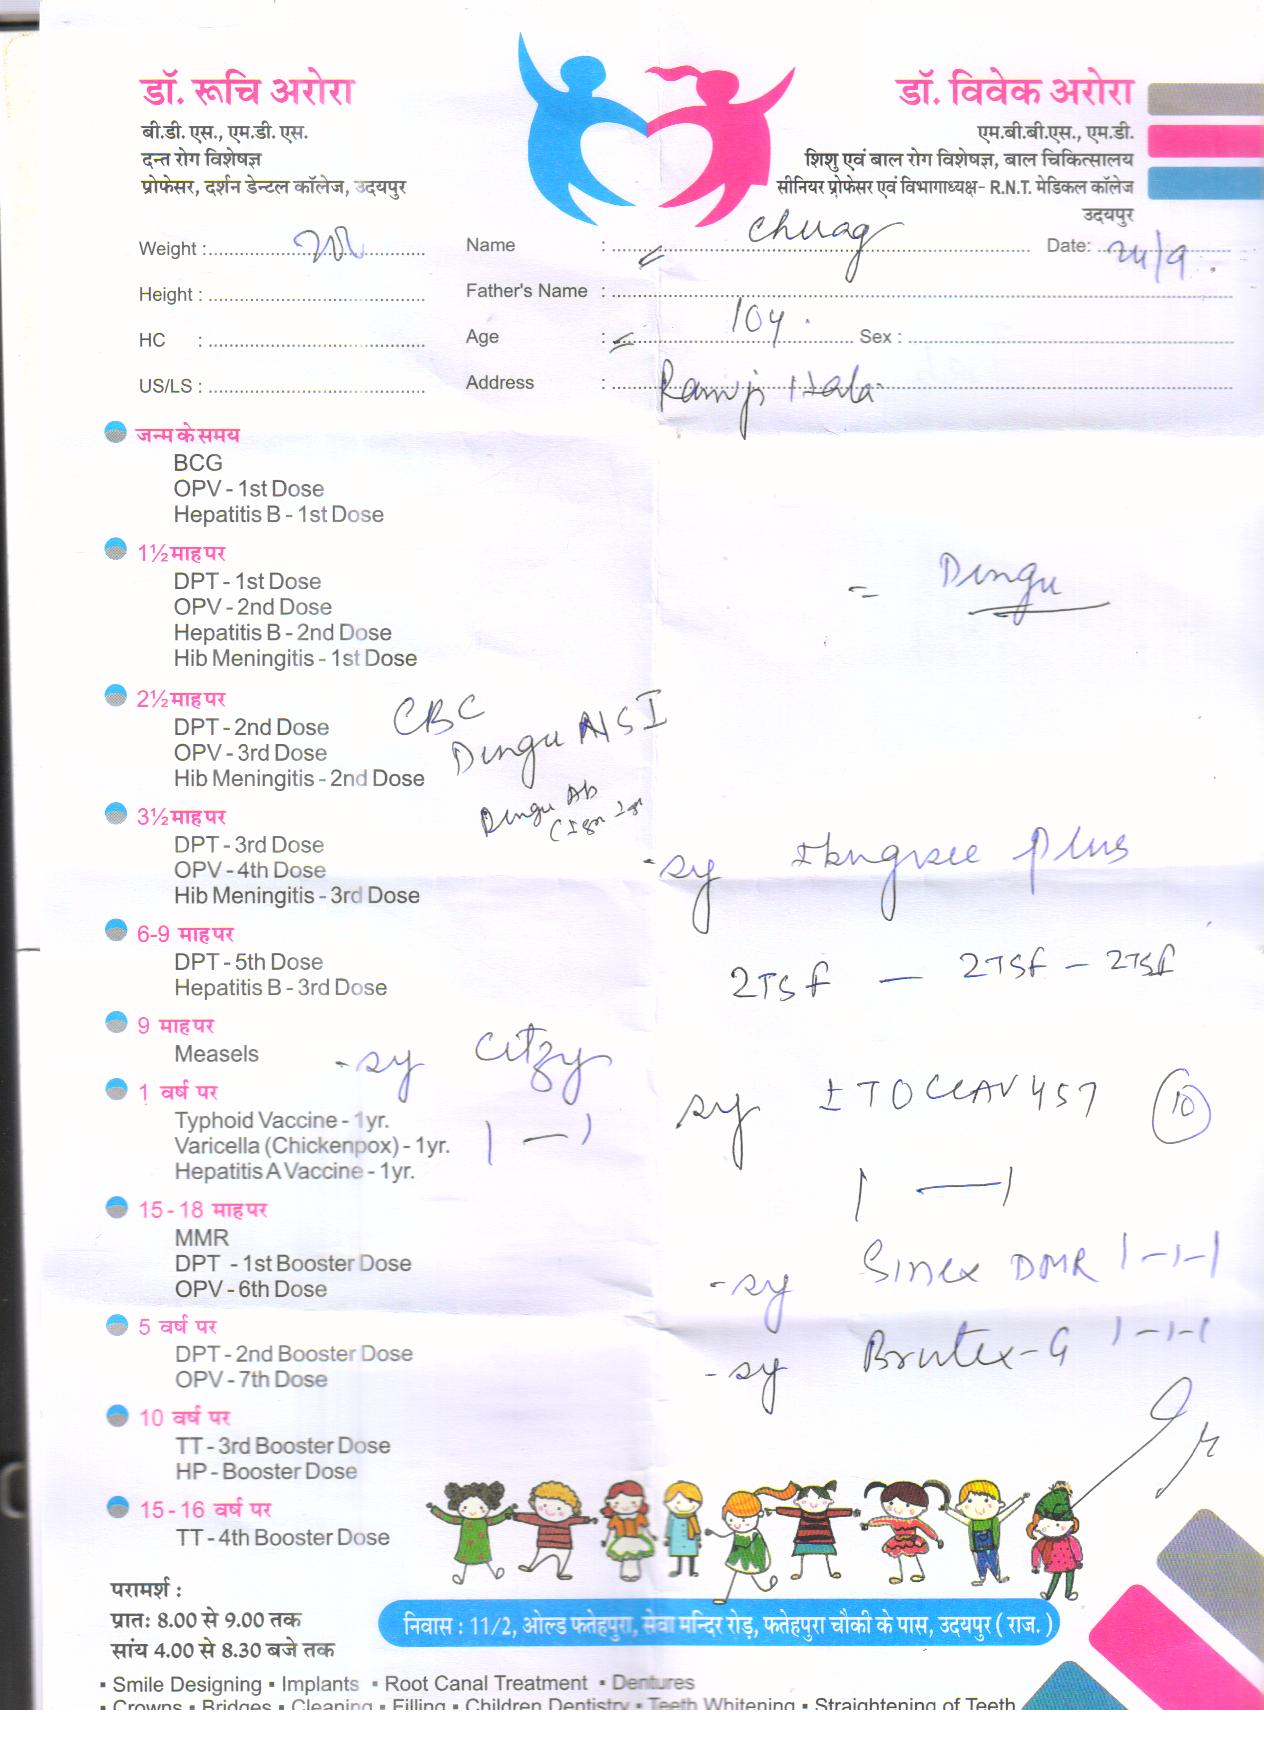 डॉ. रूचि अरोरा
बी.डी. एस., एम.डी. एस.
दन्त रोग विशेषज्ञ
प्रोफेसर, दर्शन डेन्टल कॉलेज, उदयपुर
डॉ. विवेक अरोरा
एम.बी.बी.एस., एम.डी.
शिशु एवं बाल रोग विशेषज्ञ, बाल चिकित्सालय
सीनियर प्रोफेसर एवं विभागाध्यक्ष- R.N.T. मेडिकल कॉलेज
उदयपुर
Weight :
Name : Chuag Date: 24/9
Height :
Father's Name :
HC :
Age : 10y. Sex :
US/LS :
Address : Ramji
जन्म के समय
BCG
OPV - 1st Dose
Hepatitis B - 1st Dose
1½ माह पर
DPT - 1st Dose
OPV - 2nd Dose
Hepatitis B - 2nd Dose
Hib Meningitis - 1st Dose
= Dengu
2½ माह पर
DPT - 2nd Dose
OPV - 3rd Dose
Hib Meningitis - 2nd Dose
CBC
Dengu NSI
Dengu Ab
3½ माह पर
DPT - 3rd Dose
OPV - 4th Dose
Hib Meningitis - 3rd Dose
- sy Plus
2TSF — 2TSF — 2TSF
6-9 माह पर
DPT - 5th Dose
Hepatitis B - 3rd Dose
9 माह पर
Measels
- sy Citzy
1 — 1
sy CLAV 457 10
1 — 1
1 वर्ष पर
Typhoid Vaccine - 1yr.
Varicella (Chickenpox) - 1yr.
Hepatitis A Vaccine - 1yr.
15 - 18 माह पर
MMR
DPT - 1st Booster Dose
OPV - 6th Dose
- sy Sinex DMR 1-1-1
5 वर्ष पर
DPT - 2nd Booster Dose
OPV - 7th Dose
- sy Brutex-G 1-1-1
10 वर्ष पर
TT - 3rd Booster Dose
HP - Booster Dose
15 - 16 वर्ष पर
TT - 4th Booster Dose
परामर्श :
प्रातः 8.00 से 9.00 तक
सांय 4.00 से 8.30 बजे तक
निवास : 11/2, ओल्ड फतेहपुरा, सेवा मन्दिर रोड़, फतेहपुरा चौकी के पास, उदयपुर ( राज. )
▪ Smile Designing ▪ Implants ▪ Root Canal Treatment ▪ Dentures
▪ Crowns ▪ Bridges ▪ Cleaning ▪ Filling ▪ Children Dentistry ▪ Teeth Whitening ▪ Straightening of Teeth